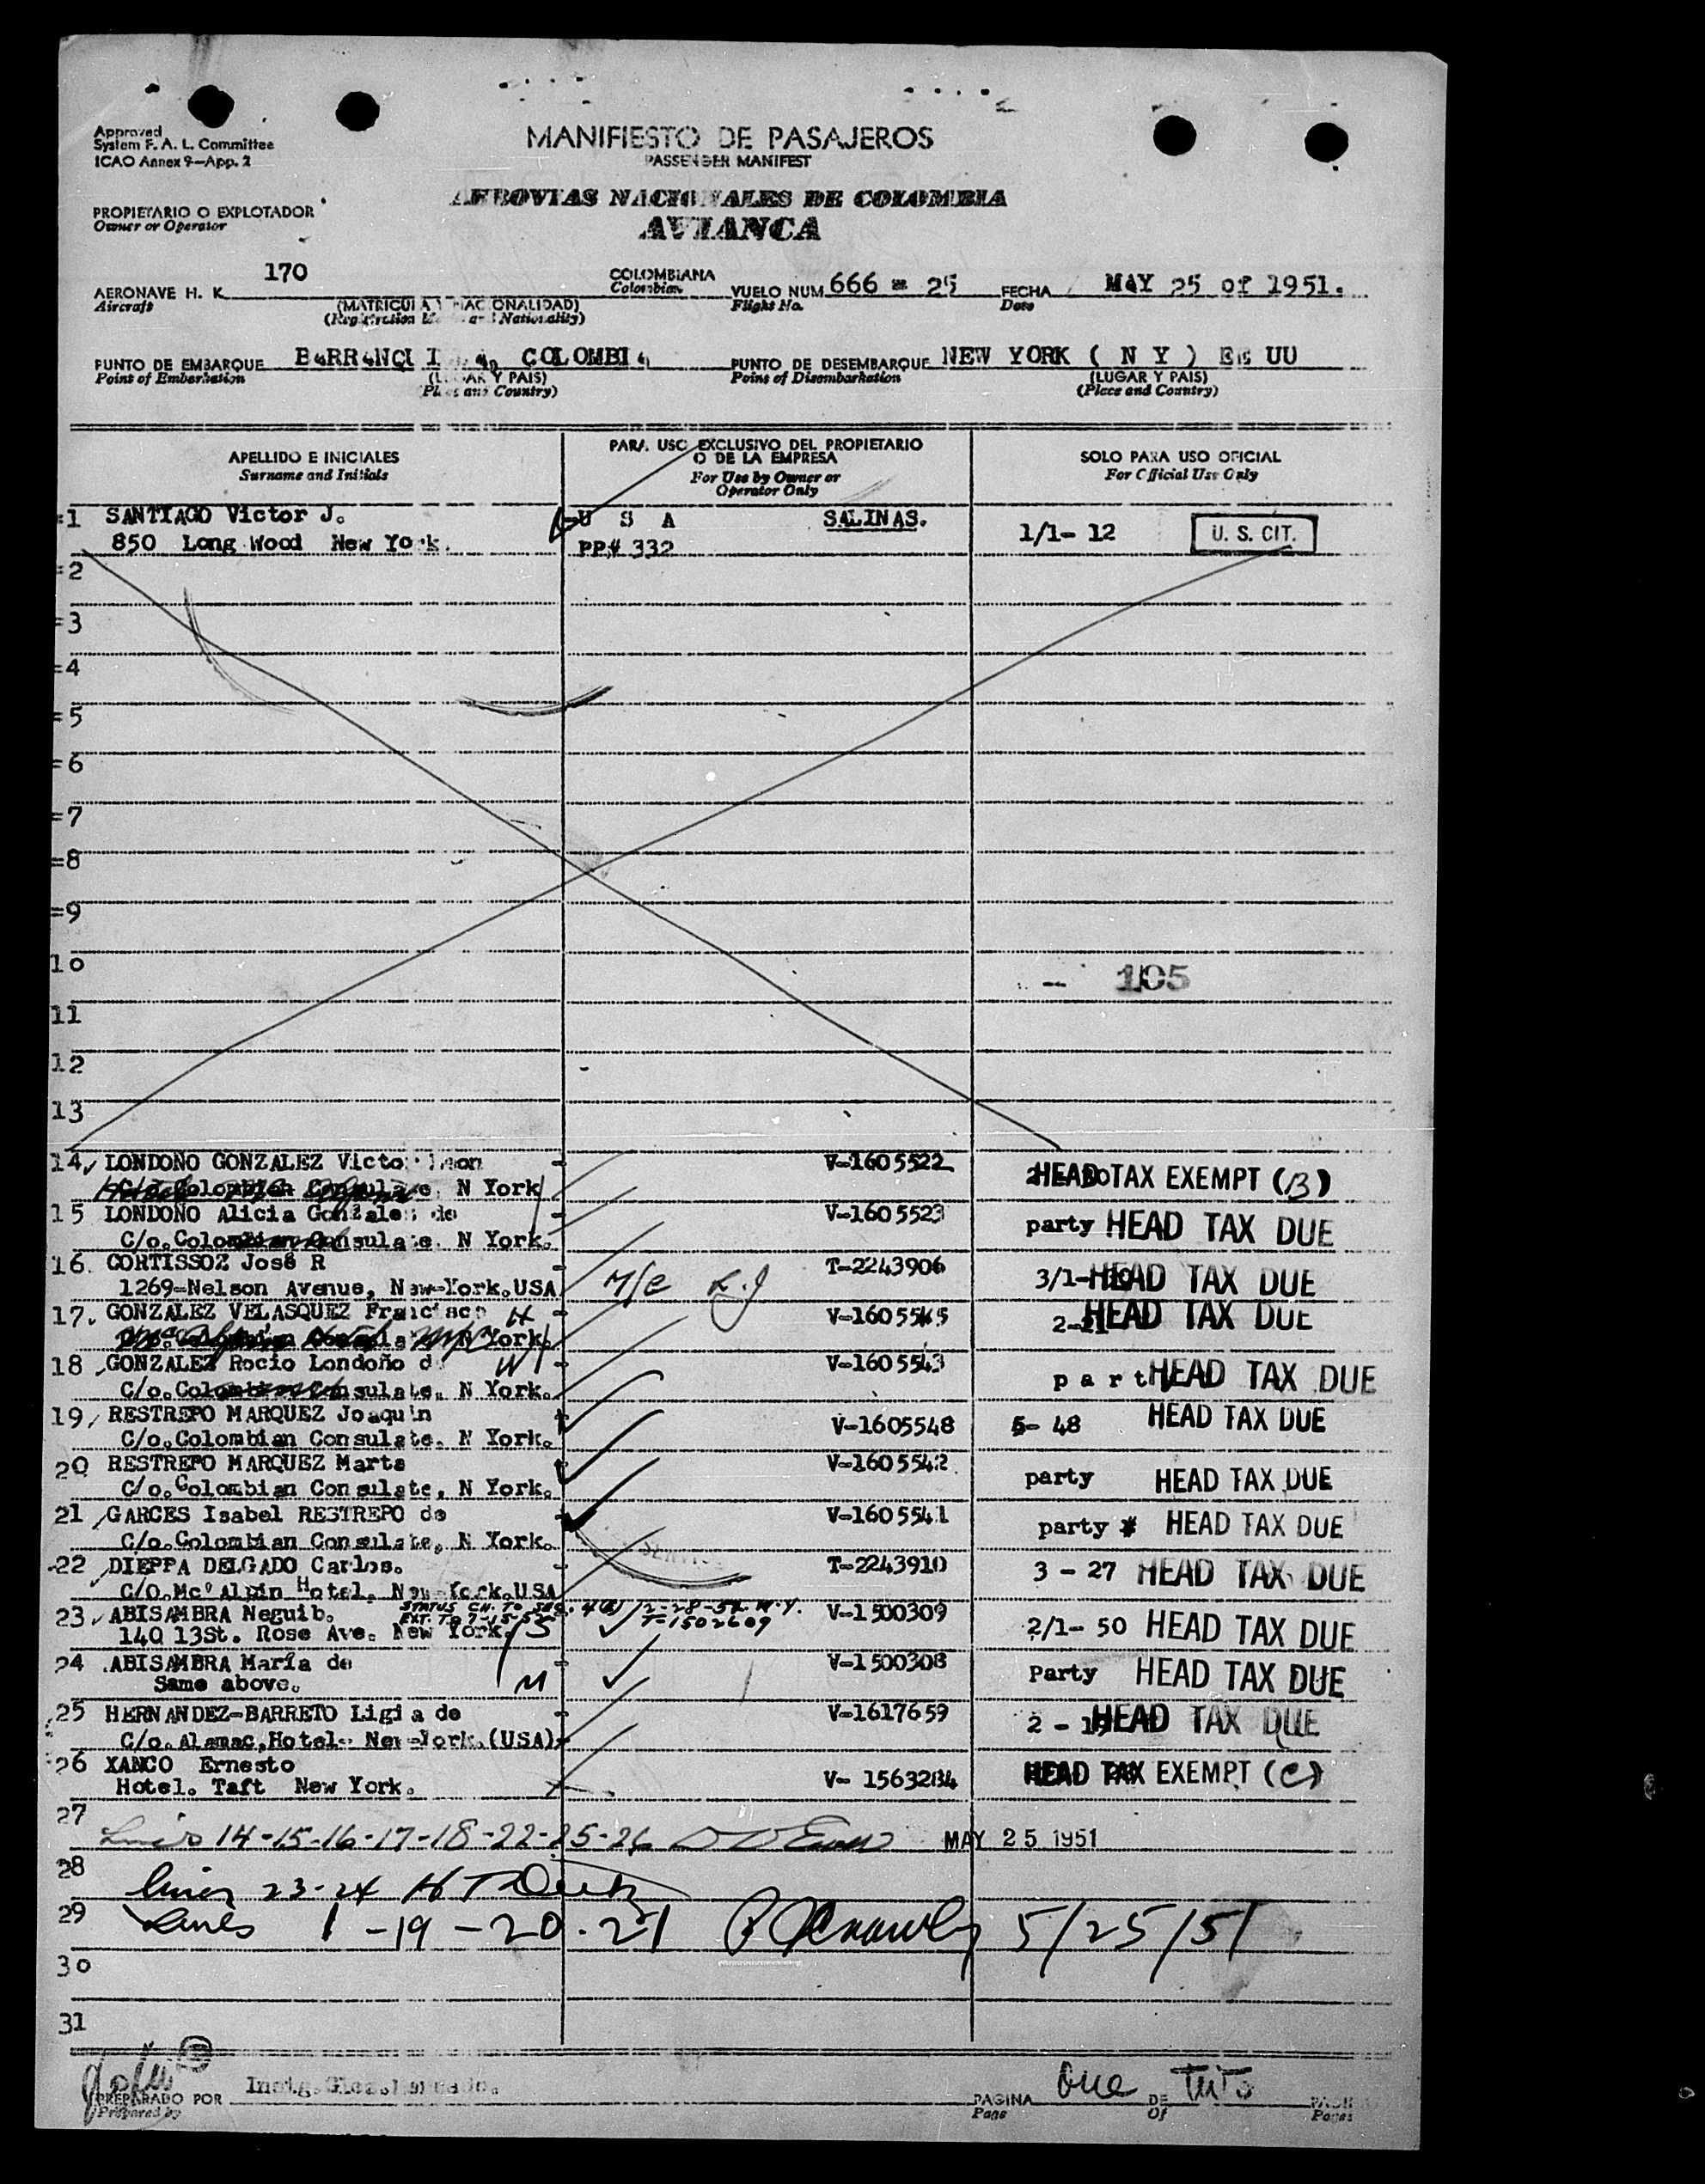 Approved
System F. A. L. Committee
ICAO Annex 9—App. 2
MANIFIESTO DE PASAJEROS
PASSENGER MANIFEST
AEROVIAS NACIONALES DE COLOMBIA
AVIANCA
PROPIETARIO O EXPLOTADOR
Owner or Operator
AERONAVE H. K. 170 COLOMBIANA VUELO NUM 666 = 25 FECHA MAY 25 of 1951.
Aircraft (MATRICULA Y NACIONALIDAD) Colombian Flight No. Date
(Registration Marks and Nationality)
PUNTO DE EMBARQUE BARRANQUILLA, COLOMBIA PUNTO DE DESEMBARQUE NEW YORK ( N Y ) EE UU
Point of Embarkation (LUGAR Y PAIS) Point of Disembarkation (LUGAR Y PAIS)
(Place and Country) (Place and Country)
APELLIDO E INICIALES PARA USO EXCLUSIVO DEL PROPIETARIO SOLO PARA USO OFICIAL
Surname and Initials O DE LA EMPRESA For Official Use Only
For Use by Owner or
Operator Only
=1 SANTIAGO Victor J. U S A SALINAS. 1/1- 12 U. S. CIT.
850 Long Wood New York. PP# 332
=2
=3
=4
=5
=6
=7
=8
=9
10 -- 105
11
12
13
14 LONDOÑO GONZALEZ Victor V-1605522 HEAD TAX EXEMPT (B)
C/o. Colombian Consulate. N York
15 LONDOÑO Alicia Gonzales de V-1605523 party HEAD TAX DUE
C/o. Colombian Consulate. N York.
16. CORTISSOZ José R T-2243906 3/1- HEAD TAX DUE
1269=Nelson Avenue, New=York.USA M/C
17. GONZALEZ VELASQUEZ Francisco H V-1605545 2-21 HEAD TAX DUE
York.
18 GONZALEZ Rocio Londoño de W V-1605543 party HEAD TAX DUE
C/o. Colombian Consulate. N York.
19 RESTREPO MARQUEZ Joaquin V-1605548 5- 48 HEAD TAX DUE
C/o. Colombian Consulate. N York.
20 RESTREPO MARQUEZ Marta V-1605542 party HEAD TAX DUE
C/o. Colombian Consulate, N York.
21 GARCES Isabel RESTREPO de V-1605541 party HEAD TAX DUE
C/o. Colombian Consulate, N York.
22 DIEPPA DELGADO Carlos. T-2243910 3 - 27 HEAD TAX DUE
C/O. Mc Alpin Hotel. New=York.USA
23 ABISAMBRA Neguib. STATUS CH. TO SEC. 4(e) 2-28-52 N.Y. V-1500309 2/1- 50 HEAD TAX DUE
EXT. TO 7-15-52 T-1502609
140 13St. Rose Ave. New York.
24 ABISAMBRA María de M V-1500308 Party HEAD TAX DUE
Same above.
25 HERNANDEZ-BARRETO Ligia de V-1617659 2 - 19 HEAD TAX DUE
C/o. Alamac,Hotel- New=York.(USA)
26 XANCO Ernesto V- 1563284 HEAD TAX EXEMPT (C)
Hotel. Taft New York.
27 Lines 14-15-16-17-18-22-25-26 MAY 25 1951
28 Lines 23-24
29 Lines 1-19-20-21 5/25/51
30
31
PREPARADO POR PAGINA One DE Two
Prepared by Page Of Pages